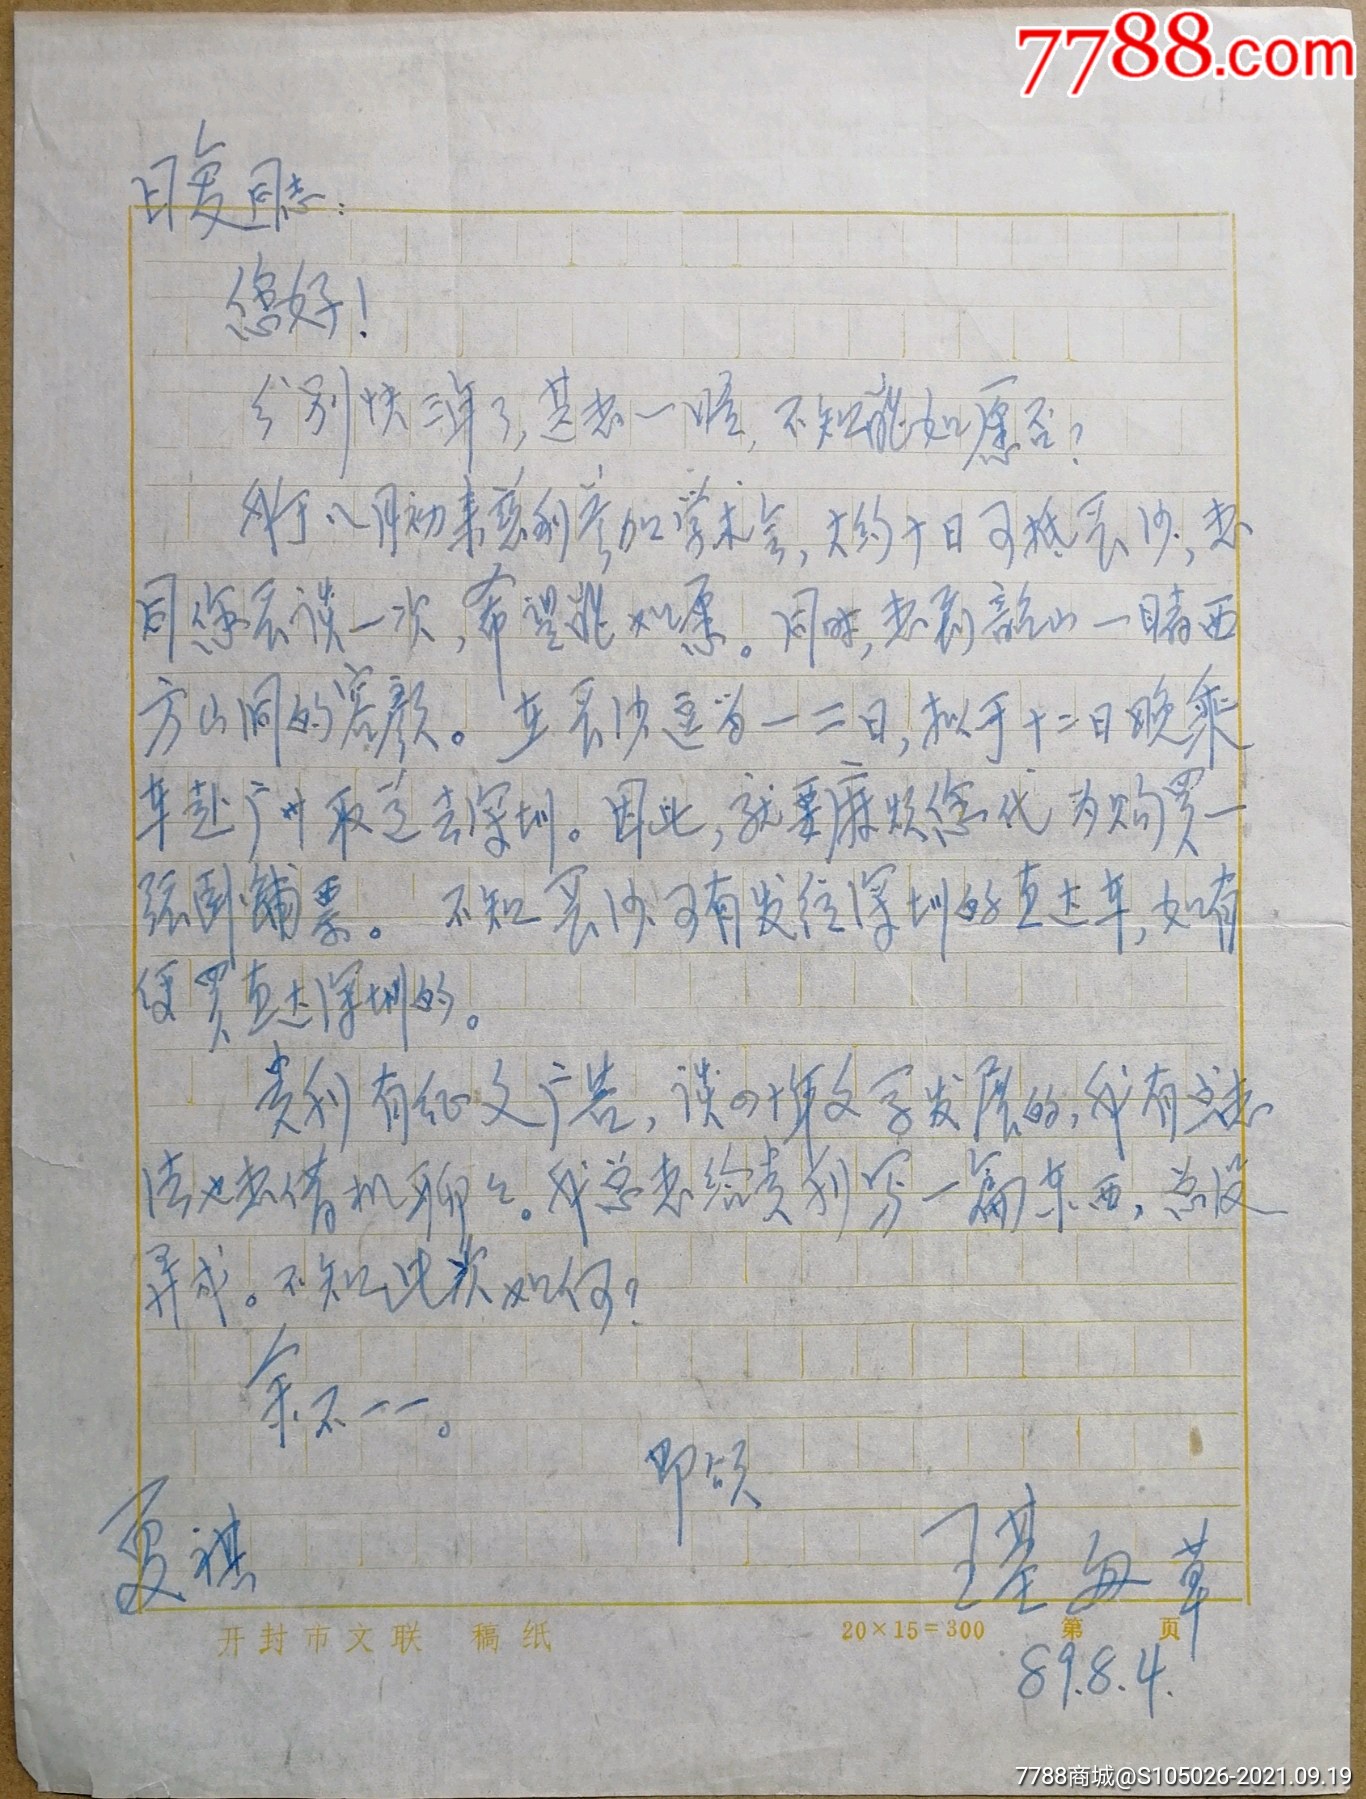 7788.com
日复同志：
您好！
分别快三年了，甚想一晤，不知能如愿否？
我于八月初来慈利参加学术会，大约十日可抵长沙，想
同您长谈一次，希望能如愿。同时，想到韶山一睹西
方山洞的容颜。在长沙逗留一二日，拟于十二日晚乘
车赴广州取道去深圳。因此，就要麻烦您代为购买一
张卧铺票。不知长沙可有发往深圳的直达车，如有
便买直达深圳的。
贵刊有征文广告，谈四十年文学发展的，我有些想
法也想借机聊聊。我总想给贵刊写一篇东西，总没
弄成。不知此次如何？
余不一一。
即颂
夏祺
王基 草
89.8.4.
开封市文联 稿纸 20×15=300 第 页
7788商城@S105026-2021.09.19